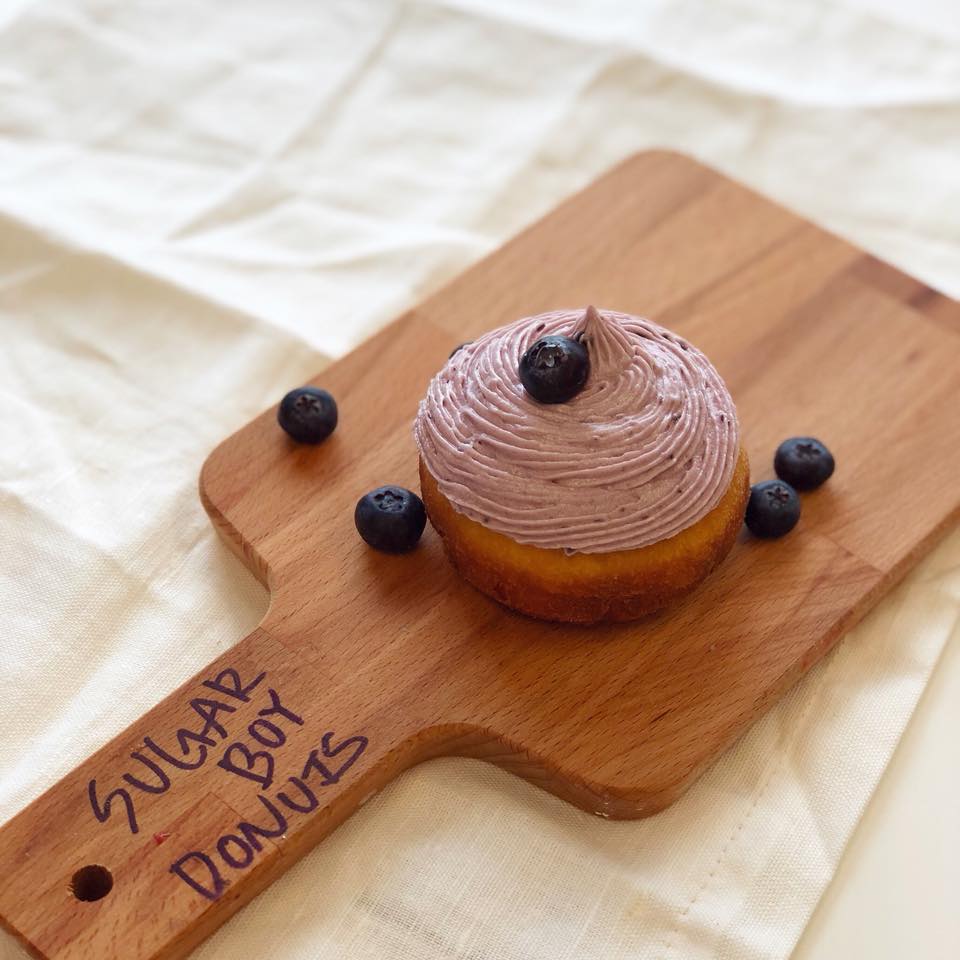 SUGAR
BOY
DONUTS